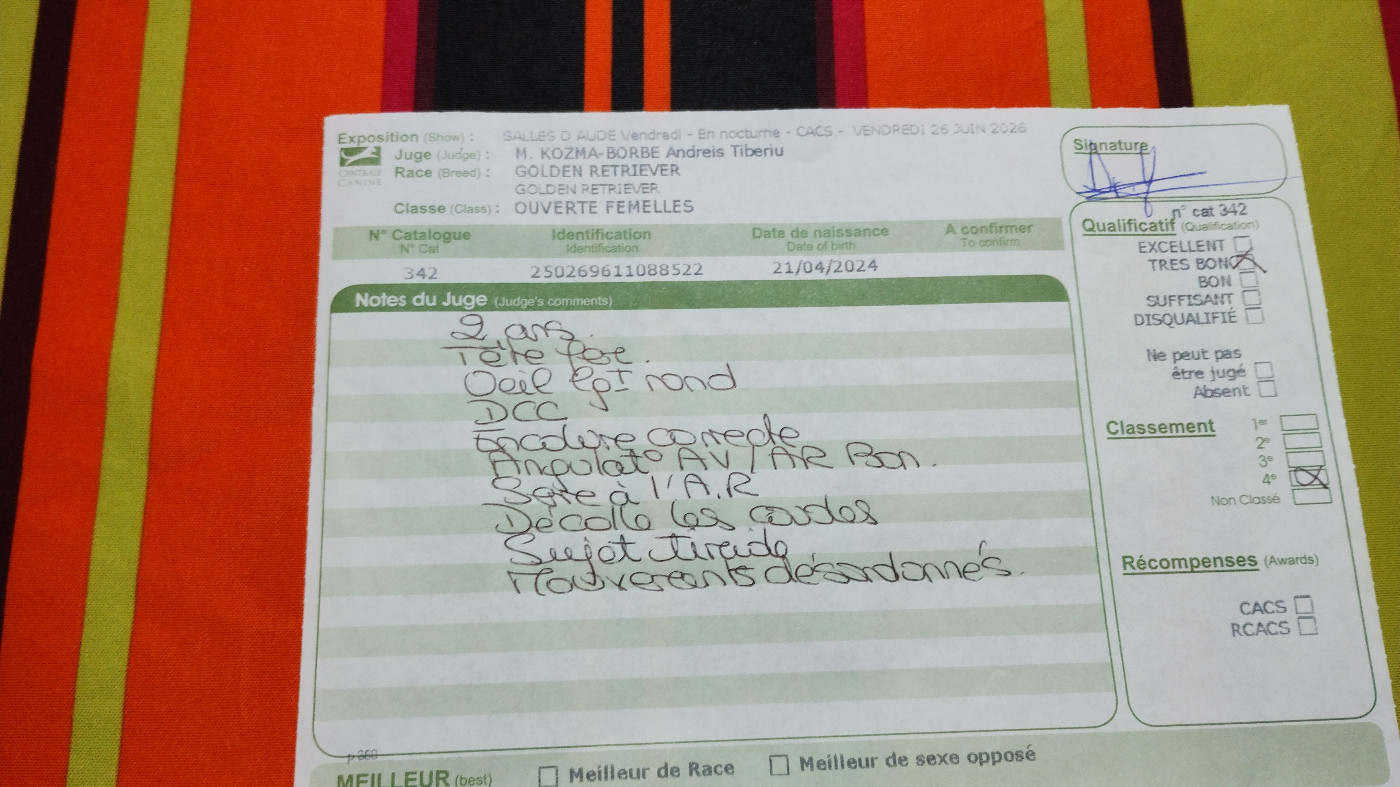 Exposition (Show) : SALLES D AUDE Vendredi - En nocturne - CACS - VENDREDI 26 JUIN 2026
CENTRALE CANINE
Juge (Judge) : M. KOZMA-BORBE Andreis Tiberiu
Race (Breed) : GOLDEN RETRIEVER
GOLDEN RETRIEVER
Classe (Class) : OUVERTE FEMELLES
Signature
n° cat 342
N° Catalogue Identification Date de naissance A confirmer
N° Cat Identification Date of birth To confirm
342 250269611088522 21/04/2024
Notes du Juge (Judge's comments)
2 ans.
Tête
Oeil lgt rond
DCC
Encolure correcte
Angulat° AV / AR Bon.
Serre à l'A.R
Décolle les coudes
Sujet timide
Mouvements désordonnés.
p 360
Qualificatif (Qualification)
EXCELLENT
TRES BON
BON
SUFFISANT
DISQUALIFIÉ
Ne peut pas
être jugé
Absent
Classement 1er
2e
3e
4e
Non Classé
Récompenses (Awards)
CACS
RCACS
MEILLEUR (best) Meilleur de Race Meilleur de sexe opposé